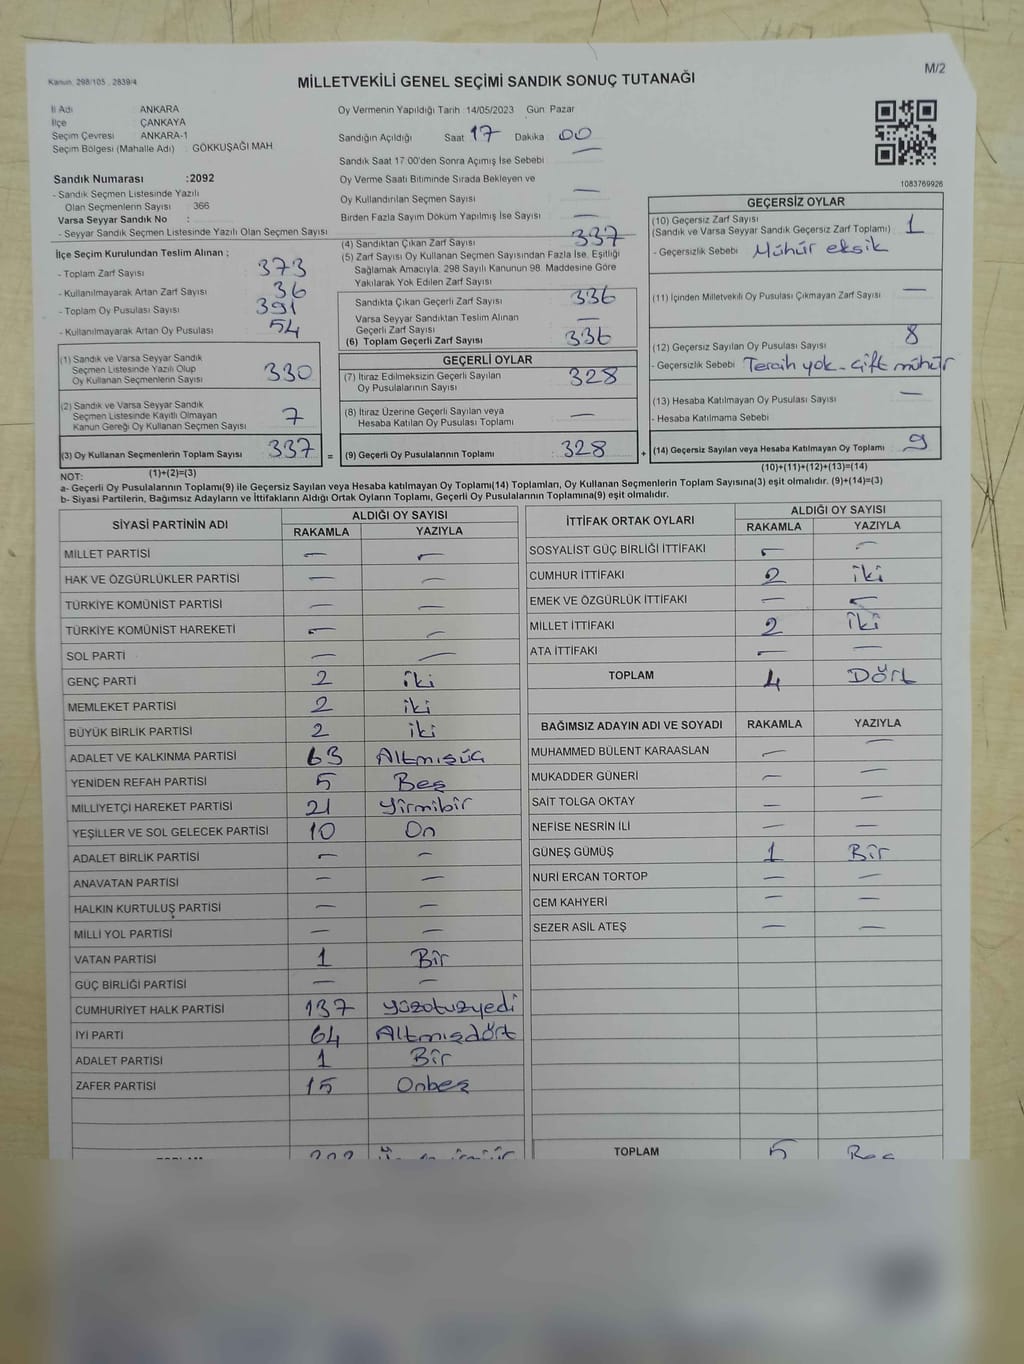 Kanun. 298/105 . 2839/4
MİLLETVEKİLİ GENEL SEÇİMİ SANDIK SONUÇ TUTANAĞI
M/2
İl Adı ANKARA
İlçe ÇANKAYA
Seçim Çevresi ANKARA-1
Seçim Bölgesi (Mahalle Adı) : GÖKKUŞAĞI MAH
Oy Vermenin Yapıldığı Tarih : 14/05/2023 Gün: Pazar
Sandığın Açıldığı Saat 17 Dakika 00
Sandık Saat 17 00'den Sonra Açımış İse Sebebi
Oy Verme Saati Bitiminde Sırada Bekleyen ve
Oy Kullandırılan Seçmen Sayısı —
Birden Fazla Sayım Döküm Yapılmış İse Sayısı —
1083769926
Sandık Numarası :2092
- Sandık Seçmen Listesinde Yazılı
Olan Seçmenlerin Sayısı : 366
Varsa Seyyar Sandık No :
- Seyyar Sandık Seçmen Listesinde Yazılı Olan Seçmen Sayısı
İlçe Seçim Kurulundan Teslim Alınan ;
- Toplam Zarf Sayısı 373
- Kullanılmayarak Artan Zarf Sayısı 36
- Toplam Oy Pusulası Sayısı 391
- Kullanılmayarak Artan Oy Pusulası 54
(1) Sandık ve Varsa Seyyar Sandık
Seçmen Listesinde Yazılı Olup
Oy Kullanan Seçmenlerin Sayısı 330
(2) Sandık ve Varsa Seyyar Sandık
Seçmen Listesinde Kayıtlı Olmayan
Kanun Gereği Oy Kullanan Seçmen Sayısı 7
(3) Oy Kullanan Seçmenlerin Toplam Sayısı 337 =
(4) Sandıktan Çıkan Zarf Sayısı 337
(5) Zarf Sayısı Oy Kullanan Seçmen Sayısından Fazla İse, Eşitliği
Sağlamak Amacıyla, 298 Sayılı Kanunun 98. Maddesine Göre
Yakılarak Yok Edilen Zarf Sayısı
Sandıkta Çıkan Geçerli Zarf Sayısı 336
Varsa Seyyar Sandıktan Teslim Alınan
Geçerli Zarf Sayısı —
(6) Toplam Geçerli Zarf Sayısı 336
GEÇERLİ OYLAR
(7) İtiraz Edilmeksizin Geçerli Sayılan
Oy Pusulalarının Sayısı 328
(8) İtiraz Üzerine Geçerli Sayılan veya
Hesaba Katılan Oy Pusulası Toplamı —
(9) Geçerli Oy Pusulalarının Toplamı 328 +
GEÇERSİZ OYLAR
(10) Geçersiz Zarf Sayısı
(Sandık ve Varsa Seyyar Sandık Geçersiz Zarf Toplamı) 1
- Geçersizlik Sebebi Mühür eksik
(11) İçinden Milletvekili Oy Pusulası Çıkmayan Zarf Sayısı —
(12) Geçersiz Sayılan Oy Pusulası Sayısı 8
- Geçersizlik Sebebi Tercih yok - çift mühür
(13) Hesaba Katılmayan Oy Pusulası Sayısı —
- Hesaba Katılmama Sebebi
(14) Geçersiz Sayılan veya Hesaba Katılmayan Oy Toplamı 9
NOT: (1)+(2)=(3)
(10)+(11)+(12)+(13)=(14)
a- Geçerli Oy Pusulalarının Toplamı(9) ile Geçersiz Sayılan veya Hesaba katılmayan Oy Toplamı(14) Toplamları, Oy Kullanan Seçmenlerin Toplam Sayısına(3) eşit olmalıdır. (9)+(14)=(3)
b- Siyasi Partilerin, Bağımsız Adayların ve İttifakların Aldığı Ortak Oyların Toplamı, Geçerli Oy Pusulalarının Toplamına(9) eşit olmalıdır.
SİYASİ PARTİNİN ADI ALDIĞI OY SAYISI
RAKAMLA YAZIYLA
MİLLET PARTİSİ — —
HAK VE ÖZGÜRLÜKLER PARTİSİ — —
TÜRKİYE KOMÜNİST PARTİSİ — —
TÜRKİYE KOMÜNİST HAREKETİ — —
SOL PARTİ — —
GENÇ PARTİ 2 iki
MEMLEKET PARTİSİ 2 iki
BÜYÜK BİRLİK PARTİSİ 2 iki
ADALET VE KALKINMA PARTİSİ 63 Altmışüç
YENİDEN REFAH PARTİSİ 5 Beş
MİLLİYETÇİ HAREKET PARTİSİ 21 Yirmibir
YEŞİLLER VE SOL GELECEK PARTİSİ 10 On
ADALET BİRLİK PARTİSİ — —
ANAVATAN PARTİSİ — —
HALKIN KURTULUŞ PARTİSİ — —
MİLLİ YOL PARTİSİ — —
VATAN PARTİSİ 1 Bir
GÜÇ BİRLİĞİ PARTİSİ — —
CUMHURİYET HALK PARTİSİ 137 Yüzotuzyedi
İYİ PARTİ 64 Altmışdört
ADALET PARTİSİ 1 Bir
ZAFER PARTİSİ 15 Onbeş
TOPLAM
İTTİFAK ORTAK OYLARI ALDIĞI OY SAYISI
RAKAMLA YAZIYLA
SOSYALİST GÜÇ BİRLİĞİ İTTİFAKI — —
CUMHUR İTTİFAKI 2 iki
EMEK VE ÖZGÜRLÜK İTTİFAKI — —
MİLLET İTTİFAKI 2 iki
ATA İTTİFAKI — —
TOPLAM 4 Dört
BAĞIMSIZ ADAYIN ADI VE SOYADI RAKAMLA YAZIYLA
MUHAMMED BÜLENT KARAASLAN — —
MUKADDER GÜNERİ — —
SAİT TOLGA OKTAY — —
NEFİSE NESRİN İLİ — —
GÜNEŞ GÜMÜŞ 1 Bir
NURİ ERCAN TORTOP — —
CEM KAHYERİ — —
SEZER ASİL ATEŞ — —
TOPLAM 5 Beş